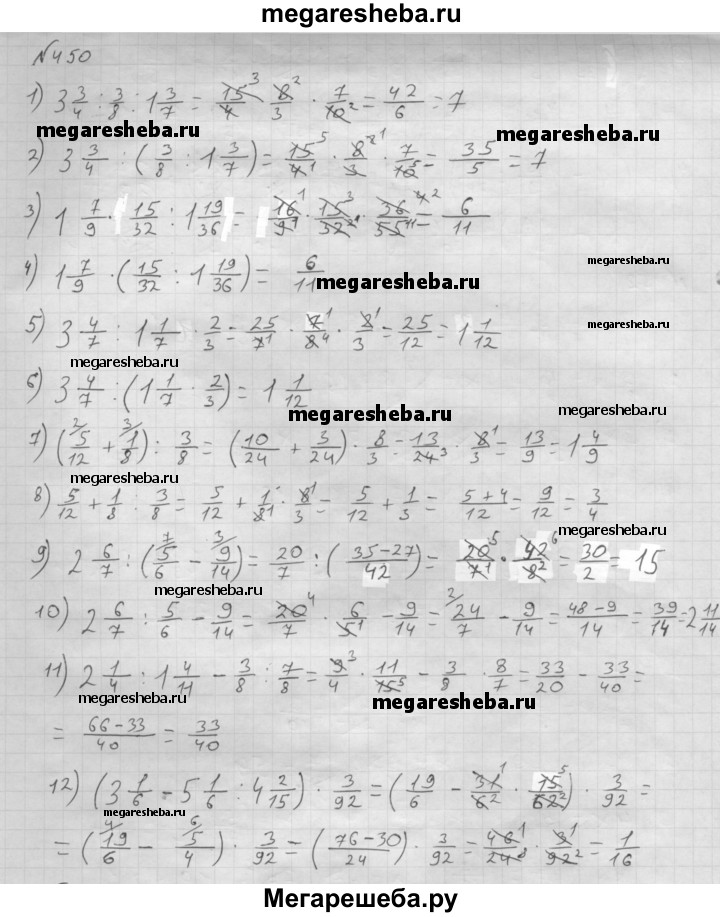 megaresheba.ru
№450
1) 3 3/4 : 3/8 : 1 3/7 = 15/4 · 8/3 · 7/10 = 42/6 = 7
megaresheba.ru
megaresheba.ru
2) 3 3/4 : (3/8 : 1 3/7) = 15/4 · 8/3 · 7/10 = 35/5 = 7
3) 1 7/9 · 15/32 : 1 19/36 = 16/9 · 15/32 · 36/55 = 6/11
megaresheba.ru
4) 1 7/9 · (15/32 : 1 19/36) = 6/11
megaresheba.ru
5) 3 4/7 : 1 1/7 · 2/3 = 25/7 · 7/8 · 8/3 = 25/12 = 1 1/12
megaresheba.ru
megaresheba.ru
6) 3 4/7 : (1 1/7 · 2/3) = 1 1/12
megaresheba.ru
megaresheba.ru
7) (5/12 + 1/8) : 3/8 = (10/24 + 3/24) · 8/3 = 13/24 · 8/3 = 13/9 = 1 4/9
megaresheba.ru
8) 5/12 + 1/8 : 3/8 = 5/12 + 1/8 · 8/3 = 5/12 + 1/3 = 5+4/12 = 9/12 = 3/4
megaresheba.ru
9) 2 6/7 : (5/6 - 9/14) = 20/7 : (35-27/42) = 20/7 · 42/8 = 30/2 = 15
megaresheba.ru
10) 2 6/7 : 5/6 - 9/14 = 20/7 · 6/5 - 9/14 = 24/7 - 9/14 = 48-9/14 = 39/14 = 2 11/14
11) 2 1/4 : 1 4/11 - 3/8 : 7/8 = 9/4 · 11/15 - 3/8 · 8/7 = 33/20 - 33/40 =
megaresheba.ru
megaresheba.ru
= 66-33/40 = 33/40
12) (3 1/6 - 5 1/6 : 4 2/15) · 3/92 = (19/6 - 31/6 · 15/62) · 3/92 =
megaresheba.ru
= (19/6 - 5/4) · 3/92 = (76-30/24) · 3/92 = 46/24 · 3/92 = 1/16
Мегарешеба.ру